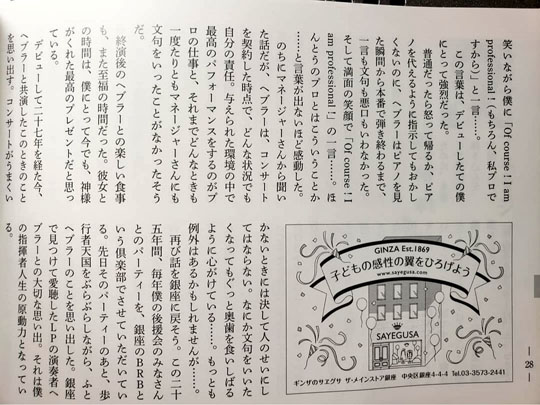 笑いながら僕に「Of course！I am
professional！（もちろん、私プロで
すから）」と一言……。
この言葉は、デビューしたての僕
にとって強烈だった。
普通だったら怒って帰るか、ピア
ノを代えるように指示してもおかし
くないのに、ヘブラーはピアノを見
た瞬間から本番で弾き終わるまで、
一言も文句も悪口もいわなかった。
そして満面の笑顔で「Of course！I
am professional！」の一言……。ほ
んとうのプロとはこういうことか
……と言葉が出ないほど感動した。
のちにマネージャーさんから聞い
た話だが、ヘブラーは、コンサート
を契約した時点で、どんな状況でも
自分の責任。与えられた環境の中で
最高のパフォーマンスをするのがプ
ロの仕事と、それまでどんなときも
一度たりともマネージャーさんにも
文句をいったことがなかったそう
だ。
終演後のヘブラーとの楽しい食事
も、また至福の時間だった。彼女と
の時間は、僕にとって今でも、神様
がくれた最高のプレゼントだと思っ
ている。
デビューして二十七年を経た今、
ヘブラーと共演したこのときのこと
を思い出す。コンサートがうまくい
かないときには決して人のせいにし
てはならない。なにか文句をいいた
くなってもぐっと奥歯を食いしばる
ように心がけている……。もっとも
例外はあるかもしれませんが……。
再び話を銀座に戻そう。この二十
五年間、毎年僕の後援会のみなさん
とのパーティーを、銀座のBRBと
いう倶楽部でさせていただいてい
る。先日そのパーティーのあと、歩
行者天国をぶらぶらしながら、ふと
ヘブラーのことを思い出した。銀座
で見つけて愛聴したLPの演奏者へ
ブラーとの大切な思い出。それは僕
の指揮者人生の原動力となってい
る。
GINZA Est.1869
子どもの感性の翼をひろげよう
www.sayegusa.com
SAYEGUSA
ギンザのサヱグサ ザ・メインストア銀座 中央区銀座4-4-4 Tel.03-3573-2441
28